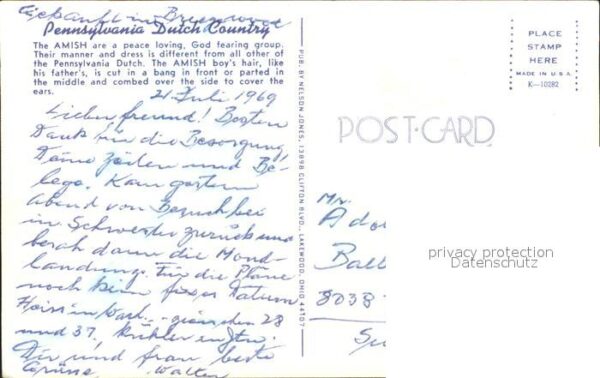 Gekauft in
Pennsylvania Dutch Country
The AMISH are a peace loving, God fearing group.
Their manner and dress is different from all other of
the Pennsylvania Dutch. The AMISH boy's hair, like
his father's, is cut in a bang in front or parted in
the middle and combed over the side to cover the
ears.
21 Juli 1969
Lieber freund! Besten
Dank für die Besorgung,
Deine Zeilen und Be-
lege. Kam gestern
Abend von Besuch bei
in Schwester zurück und
besah dann die Mond-
landung. Für die Pläne
noch kein fixes Datum
28
und 31.
Dir und frau beste
Grüsse Walter
PUB. BY NELSON JONES, 13898 CLIFTON BLVD., LAKEWOOD, OHIO 44107
POST-CARD
PLACE
STAMP
HERE
MADE IN U.S.A.
K-10282
Mr.
Ado
Ball
8038
privacy protection
Datenschutz